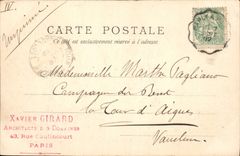 IV.
Imprimé
CARTE POSTALE
Ce côté est exclusivement réservé à l'adresse
Mademoiselle Marthe Pagliano
Campagne du
La Tour d'Aigues
Vaucluse
XAVIER GIRARD
ARCHITECTE
49, Rue Caulaincourt
PARIS